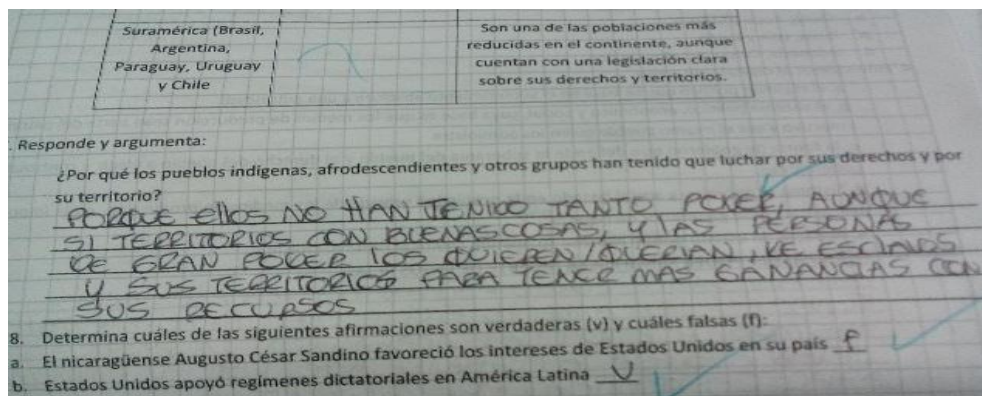 Suramérica (Brasil,
Argentina,
Paraguay, Uruguay
y Chile
Son una de las poblaciones más
reducidas en el continente, aunque
cuentan con una legislación clara
sobre sus derechos y territorios.
. Responde y argumenta:
¿Por qué los pueblos indígenas, afrodescendientes y otros grupos han tenido que luchar por sus derechos y por
su territorio?
PORQUE ellos NO HAN TENIDO TANTO PODER, AUNQUE
SI TERRITORIOS CON BUENAS COSAS, y lAS PERSONAS
DE GRAN PODER lOS QUIEREN/QUERIAN, DE ESClAVOS
y SUS TERRITORIOS PARA TENER MAS GANANCIAS CON
SUS RECURSOS
8. Determina cuáles de las siguientes afirmaciones son verdaderas (v) y cuáles falsas (f):
a. El nicaragüense Augusto César Sandino favoreció los intereses de Estados Unidos en su país f
b. Estados Unidos apoyó regímenes dictatoriales en América Latina V